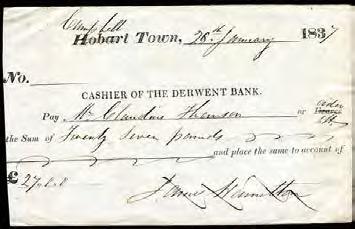 Campbell
Hobart Town, 28th January 1837
No.
CASHIER OF THE DERWENT BANK.
order
Pay Mr Claudius Thomson or Bearer
the Sum of Twenty Seven pounds
and place the same to account of
£27
James Hamilton